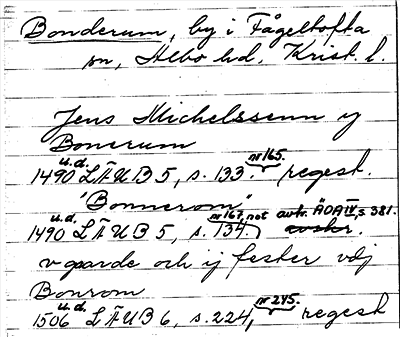 Bonderum, by i Fågeltofta
sn, Albo hd, Krist. l.
Jens Michelssenn ij
Bonerum
1490 u.d. LÄUB 5, s. 133. nr 165. regest.
"Bonnerom"
1490 u.d. LÄUB 5, s. 134. nr 167, not avtr. ÄDA IV, s 381. avskr.
v garde och ij fester vdj
Bonrom
1506 u.d. LÄUB 6, s. 224, nr 245. regest